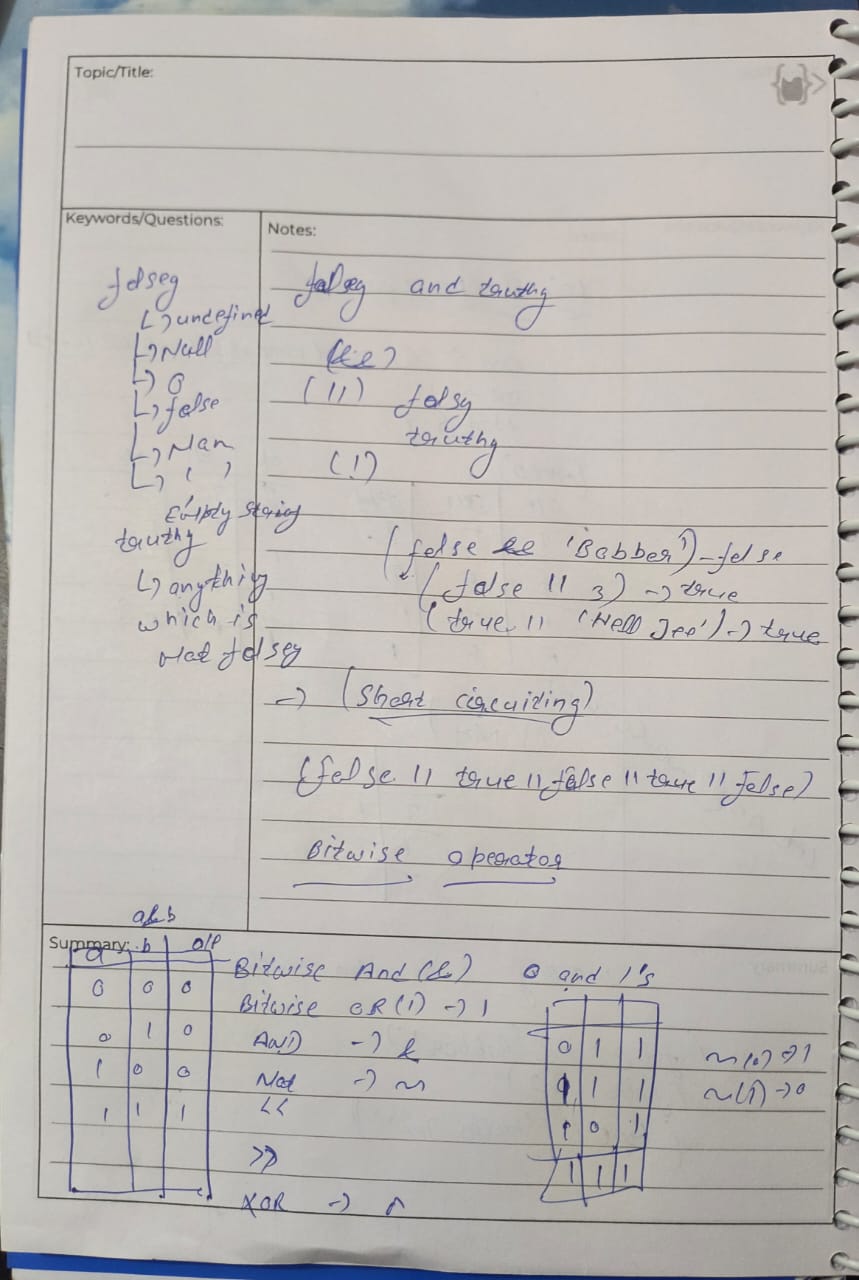 Topic/Title:
Keywords/Questions:
falsey
↳ undefined
↳ Null
↳ 0
↳ false
↳ Nan
↳ ' '
Empty string
truthy
↳ anything
which is
Not falsey
Notes:
falsey and truthy
(&&)
(||) falsy
truthy
(!)
(false && 'Babber') - false
(false || 3) -> true
(true || 'Hell Jee') -> true
-> (Short circuiting)
(false || true || false || true || false)
Bitwise operator
Summary:
a&b
a b o/p
0 0 0
0 1 0
1 0 0
1 1 1
Bitwise And (&) 0 and 1's
Bitwise OR (|) -> |
AND -> &
Not -> ~
<<
>>
XOR -> ^
0 1 1
1 1
1 0 1
1 1 1
~(0) -> 1
~(1) -> 0